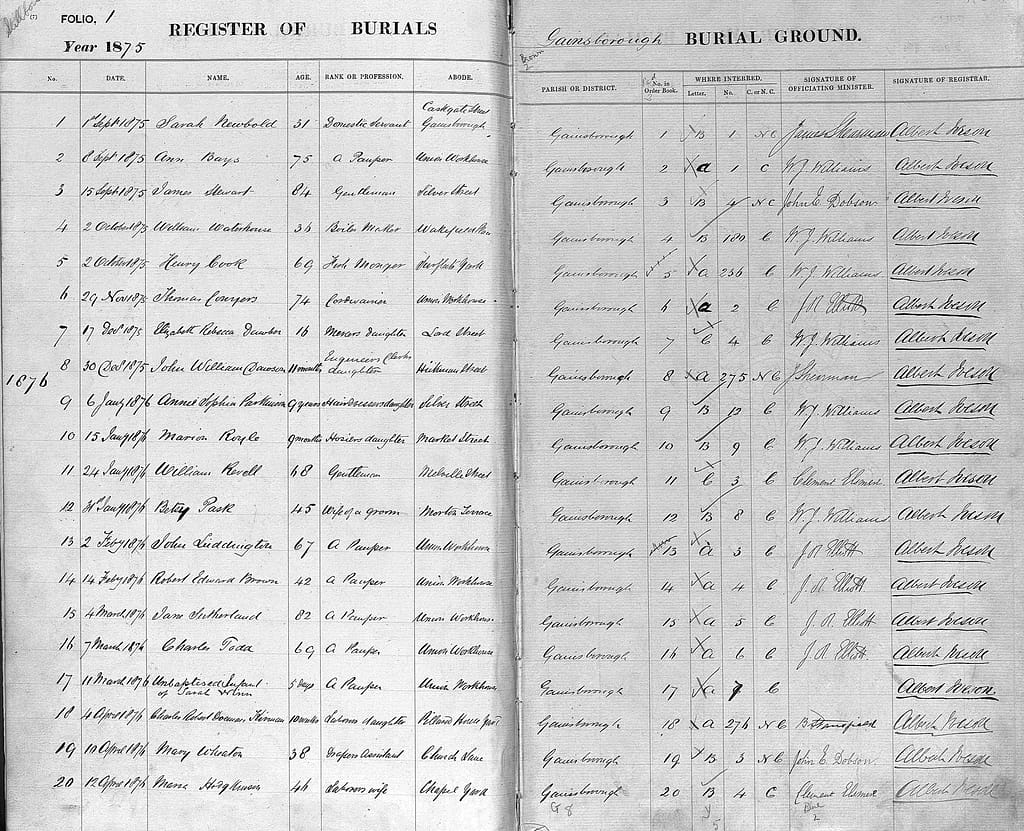 (7) FOLIO, 1
Year 1875
REGISTER OF BURIALS
No. DATE. NAME. AGE. RANK OR PROFESSION. ABODE.
Caskgate Street
1 1st Sept 1875 Sarah Newbold 31 Domestic Servant Gainsborough
2 8 Sept 1875 Ann Bays 75 A Pauper Union Workhouse
3 15 Sept 1875 James Stewart 84 Gentleman Silver Street
4 2 October 1875 William Waterhouse 36 Boiler Maker Wakefield
5 2 October 1875 Henry Cook 69 Fish Monger Yard
6 29 Nov 1875 Thomas Conyers 74 Cordwainer Union Workhouse
7 17 Dec 1875 Elizabeth Rebecca 16 daughter Lord Street
Engineers Clerks
8 30 Dec 1875 John William Dawson 11 months daughter Hickman Street
1876
9 6 Jany 1876 Annie Sophia Parkinson 9 years Hairdressers daughter Silver Street
10 15 Jany 1876 Marion Royle 9 months Hosiers daughter Market Street
11 24 Jany 1876 William Revell 68 Gentleman Melville Street
12 31st Jany 1876 Betsy Pask 45 Wife of a Groom Morton Terrace
13 2 Feby 1876 John Luddington 67 A Pauper Union Workhouse
14 14 Feby 1876 Robert Edward Brown 42 A Pauper Union Workhouse
15 4 March 1876 Jane Sutherland 82 A Pauper Union Workhouse
16 7 March 1876 Charles Todd 69 A Pauper Union Workhouse
17 11 March 1876 Unbaptised Infant 5 days A Pauper Union Workhouse
of Sarah Winn
18 4 April 1876 Charles Robert 10 weeks Labourers daughter
19 10 April 1876 Mary Wheaton 38 Drapers Assistant Church Lane
20 12 April 1876 Maria Hodgkinson 46 Labourers wife Chapel Yard
Gainsborough BURIAL GROUND.
PARISH OR DISTRICT. No. in Order Book. WHERE INTERRED. Letter. No. C. or N. C. SIGNATURE OF OFFICIATING MINISTER. SIGNATURE OF REGISTRAR.
Gainsborough 1 B 1 N C James Shearman Albert Iveson
Gainsborough 2 a 1 C W. J. Williams Albert Iveson
Gainsborough 3 B 4 N C John E Dobson Albert Iveson
Gainsborough 4 B 180 C W. J. Williams Albert Iveson
Gainsborough 5 a 256 C W. J. Williams Albert Iveson
Gainsborough 6 a 2 C J. R. Elliott Albert Iveson
Gainsborough 7 C 4 C W. J. Williams Albert Iveson
Gainsborough 8 a 275 N C J Shearman Albert Iveson
Gainsborough 9 B 12 C W. J. Williams Albert Iveson
Gainsborough 10 B 9 C W. J. Williams Albert Iveson
Gainsborough 11 C 3 C Clement Albert Iveson
Gainsborough 12 B 8 C W. J. Williams Albert Iveson
Gainsborough 13 a 3 C J R Elliott Albert Iveson
Gainsborough 14 a 4 C J. R. Elliott Albert Iveson
Gainsborough 15 a 5 C J. R Elliott Albert Iveson
Gainsborough 16 a 6 C J. R Elliott. Albert Iveson
Gainsborough 17 a 7 C Albert Iveson.
Gainsborough 18 a 276 N C B Stansfield Albert Iveson
Gainsborough 19 B 3 N C John E Dobson Albert Iveson
Gainsborough 20 B 4 C Clement Albert Iveson